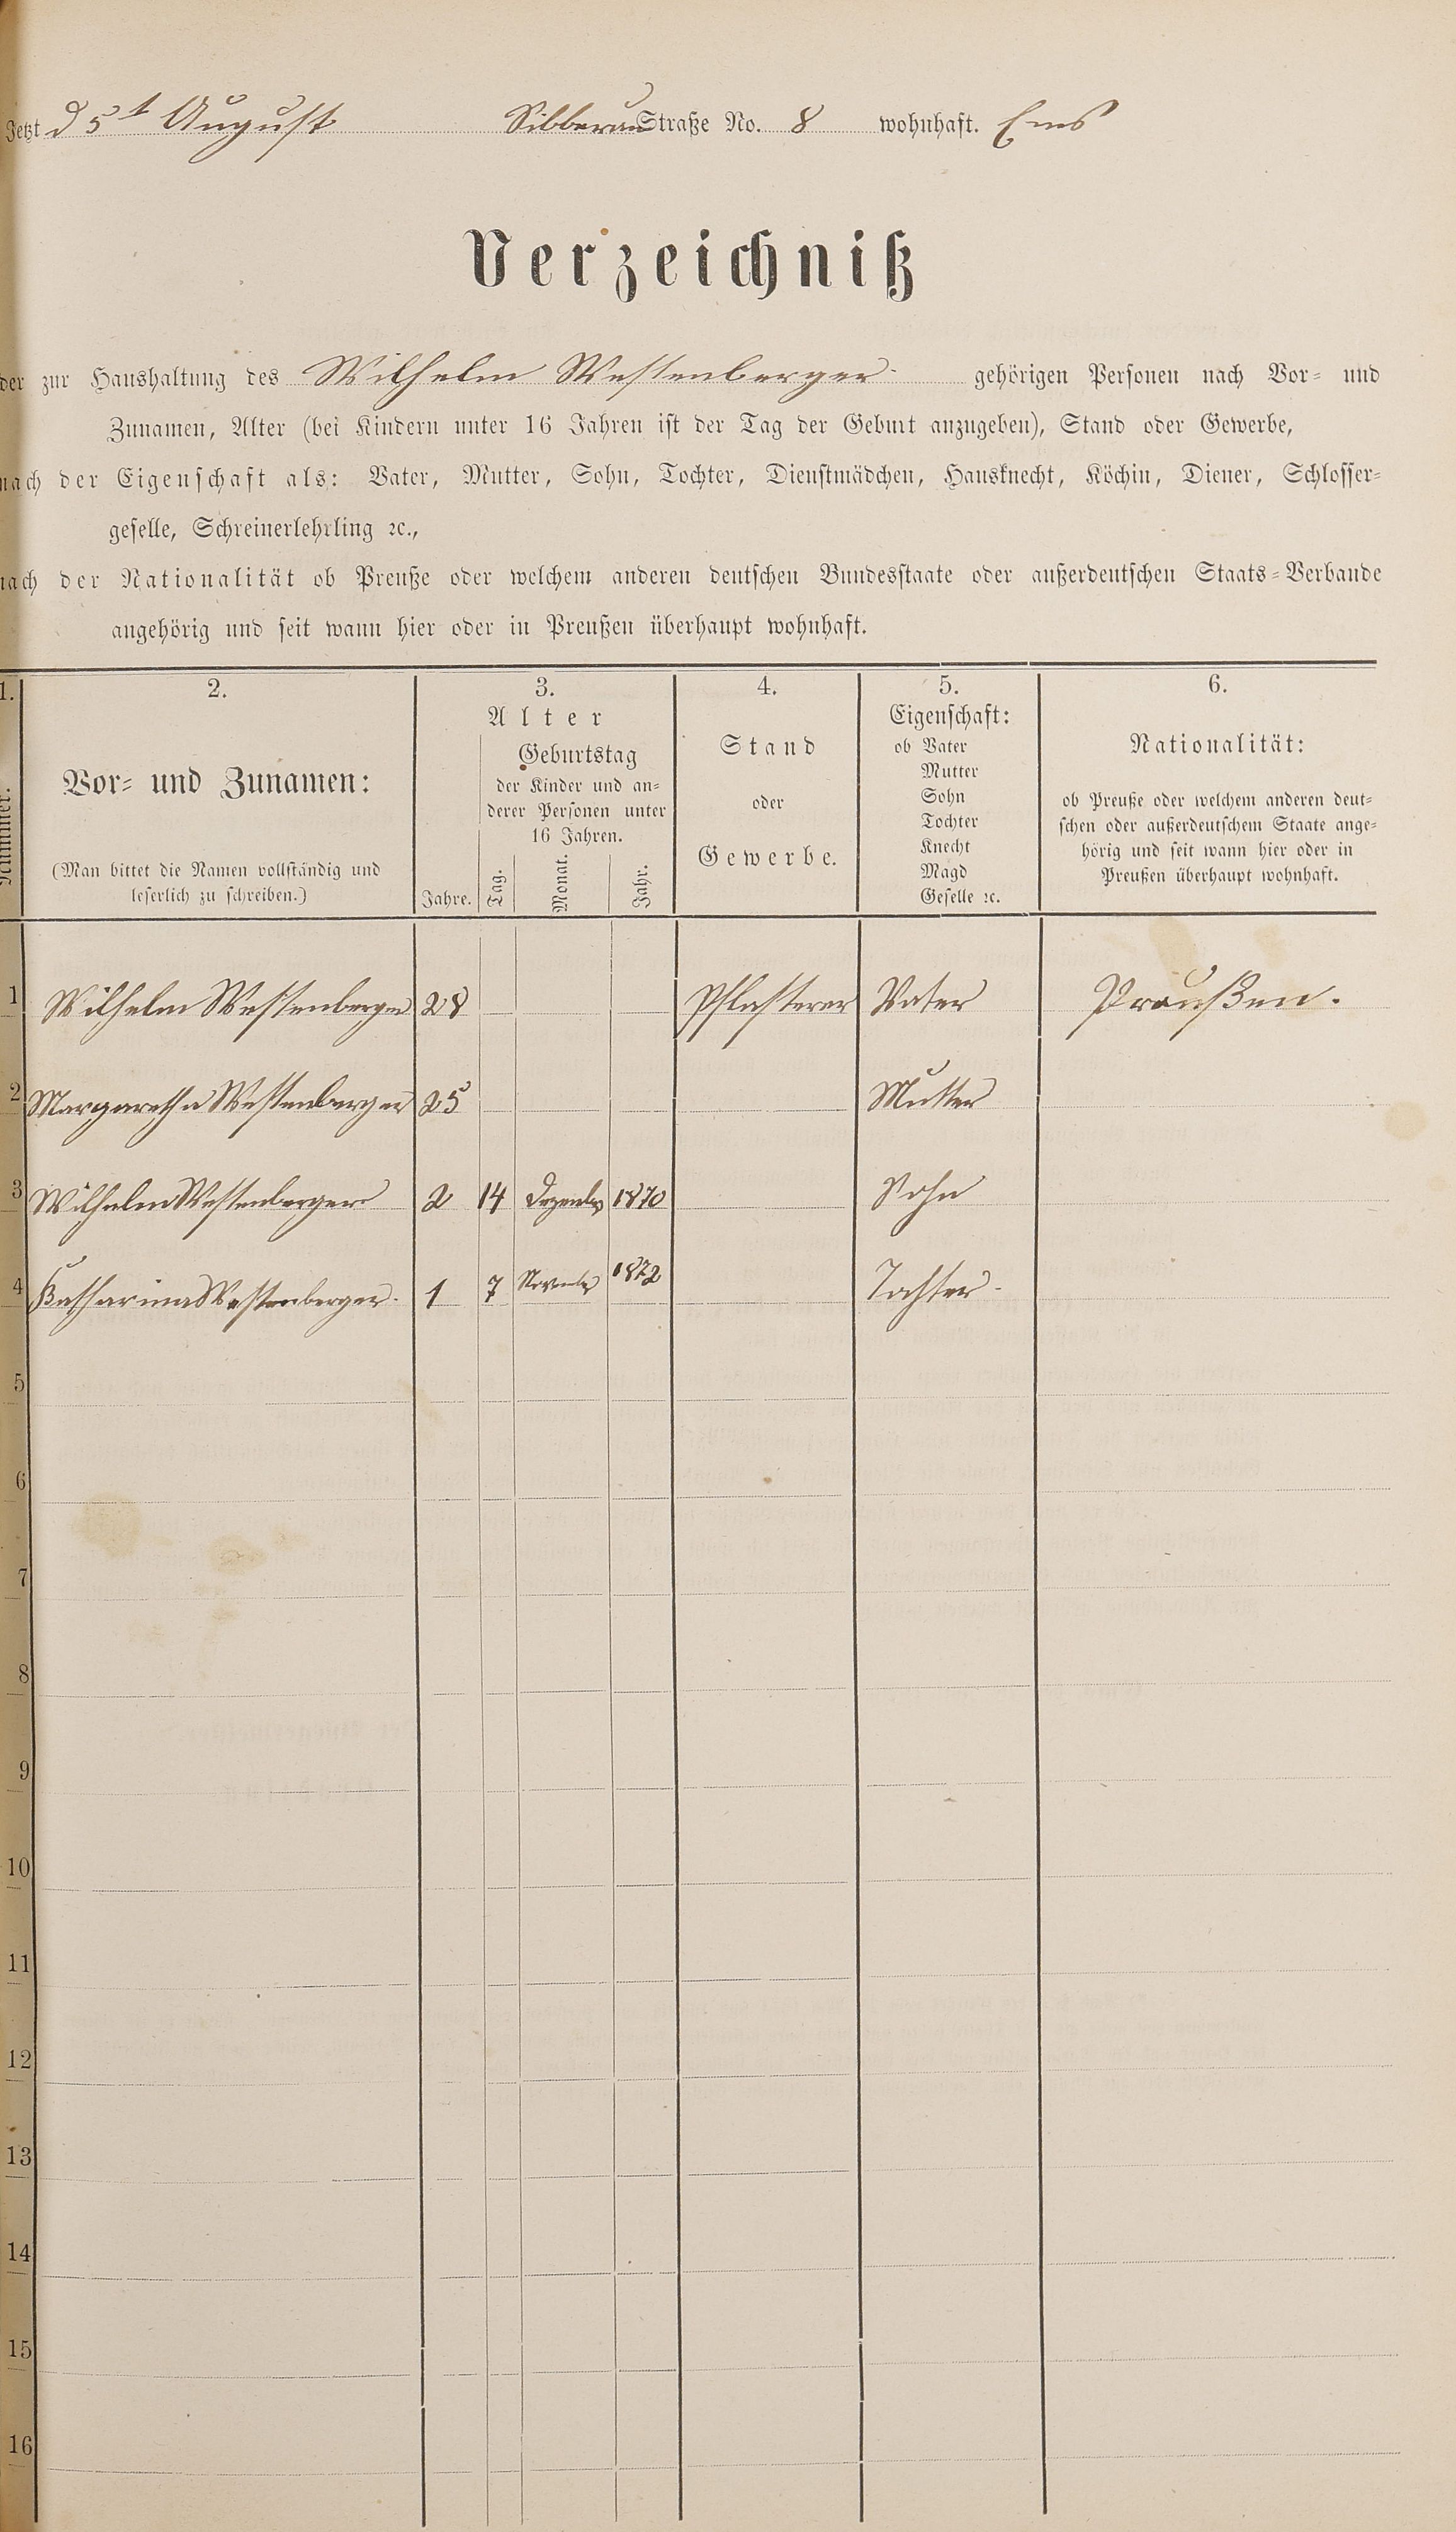 Jetzt d 5t August Silberau Straße No. 8 wohnhaft. Ems
Verzeichniß
der zur Haushaltung des Wilhelm Westenberger gehörigen Personen nach Vor- und
Zunamen, Alter (bei Kindern unter 16 Jahren ist der Tag der Geburt anzugeben), Stand oder Gewerbe,
nach der Eigenschaft als: Vater, Mutter, Sohn, Tochter, Dienstmädchen, Hausknecht, Köchin, Diener, Schlosser-
geselle, Schreinerlehrling ꝛc.,
nach der Nationalität ob Preuße oder welchem anderen deutschen Bundesstaate oder außerdeutschen Staats-Verbande
angehörig und seit wann hier oder in Preußen überhaupt wohnhaft.
1. 2. 3. 4. 5. 6.
Nummer.
Vor- und Zunamen:
(Man bittet die Namen vollständig und
leserlich zu schreiben.)
Alter
Jahre.
Geburtstag
der Kinder und an-
derer Personen unter
16 Jahren.
Tag. Monat. Jahr.
Stand
oder
Gewerbe.
Eigenschaft:
ob Vater
Mutter
Sohn
Tochter
Knecht
Magd
Geselle ꝛc.
Nationalität:
ob Preuße oder welchem anderen deut-
schen oder außerdeutschem Staate ange-
hörig und seit wann hier oder in
Preußen überhaupt wohnhaft.
1 Wilhelm Westenberger 28 Pflasterer Vater Präußen.
2 Margaretha Westenberger 25 Mutter
3 Wilhelm Westenberger 2 14 Dezember 1870 Sohn
4 Katharina Westenberger 1 7 November 1872 Tochter
5
6
7
8
9
10
11
12
13
14
15
16